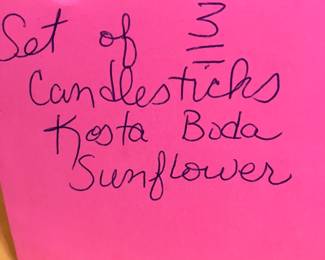 Set of 3
Candlesticks
Kosta Boda
Sunflower